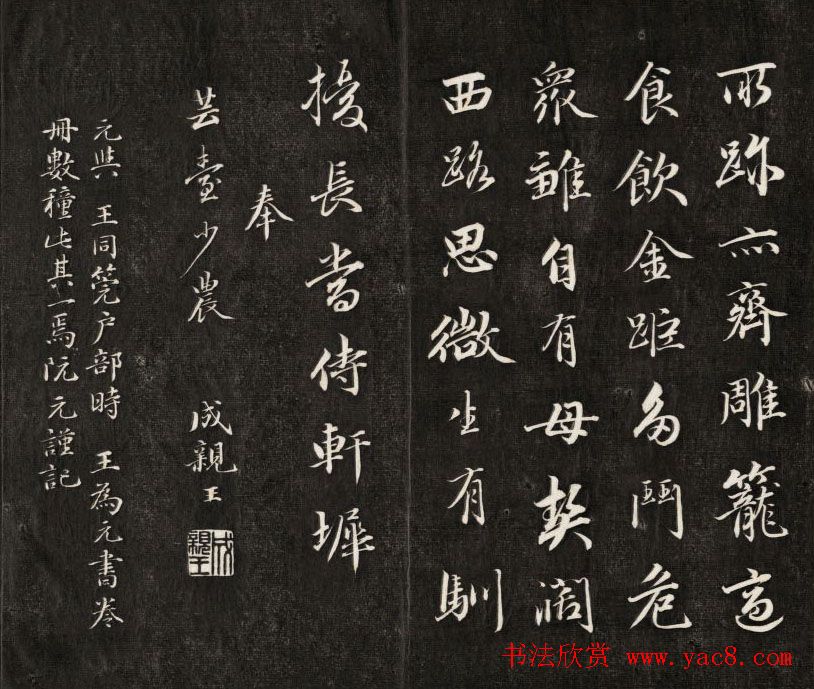 所跡亦齊雕籠高
食飲金距多鬥危
眾雛自有母契闊
西路思微生有馴
擾長當侍軒墀
奉
芸臺少農 成親王
成親王
元與 王同筦戶部時 王為元書卷
冊數種此其一焉阮元謹記
书法欣赏 www.yac8.com